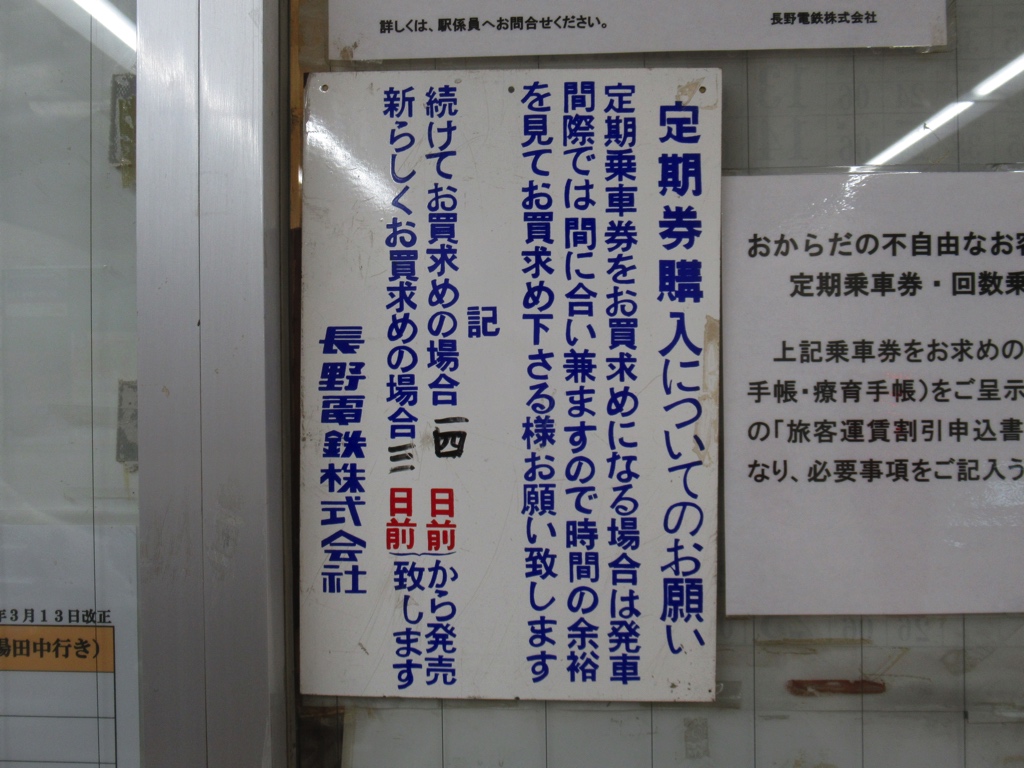 詳しくは、駅係員へお問合せください。
長野電鉄株式会社
定期券購入についてのお願い
定期乗車券をお買求めになる場合は発車
間際では間に合い兼ますので時間の余裕
を見てお買求め下さる様お願い致します
記
続けてお買求めの場合 一四 日前から発売
新らしくお買求めの場合 三 日前致します
長野電鉄株式会社
おからだの不自由なお客
定期乗車券・回数乗
上記乗車券をお求めの
手帳・療育手帳）をご呈示
の「旅客運賃割引申込書
なり、必要事項をご記入う
年３月１３日改正
湯田中行き）